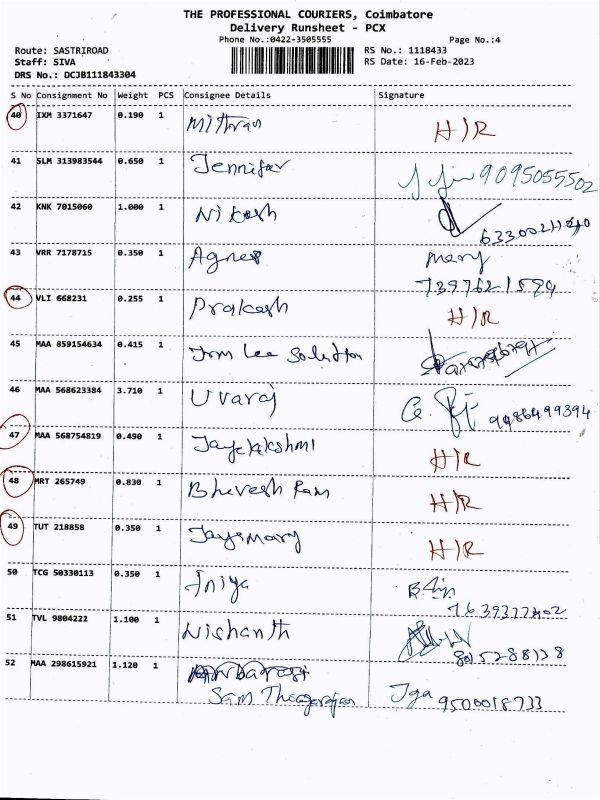 THE PROFESSIONAL COURIERS, Coimbatore
Delivery Runsheet - PCX
Phone No.:0422-3505555
Page No.:4
Route: SASTRIROAD
RS No.: 1118433
Staff: SIVA
RS Date: 16-Feb-2023
DRS No.: DCJB111843304
S No Consignment No Weight PCS Consignee Details Signature
40 IXM 3371647 0.190 1 Mithran H/R
41 SLM 313983544 0.650 1 Jennifer 9095055502
42 KNK 7015060 1.000 1 Nikesh
43 VRR 7178715 0.350 1 Agnes Mary
44 VLI 668231 0.255 1 Prakash H/R
45 MAA 859154634 0.415 1 Jom Lee Solution
46 MAA 568623384 3.710 1 Uvaraj
9486499394
47 MAA 568754819 0.490 1 Jayelakshmi H/R
48 MRT 265749 0.830 1 Bhevesh Ram H/R
49 TUT 218858 0.350 1 Jayamary H/R
50 TCG 50330113 0.350 1 Iniya
51 TVL 9804222 1.100 1 Nishanth
52 MAA 298615921 1.120 1
Sam Thiagarajan Jga 9500018733